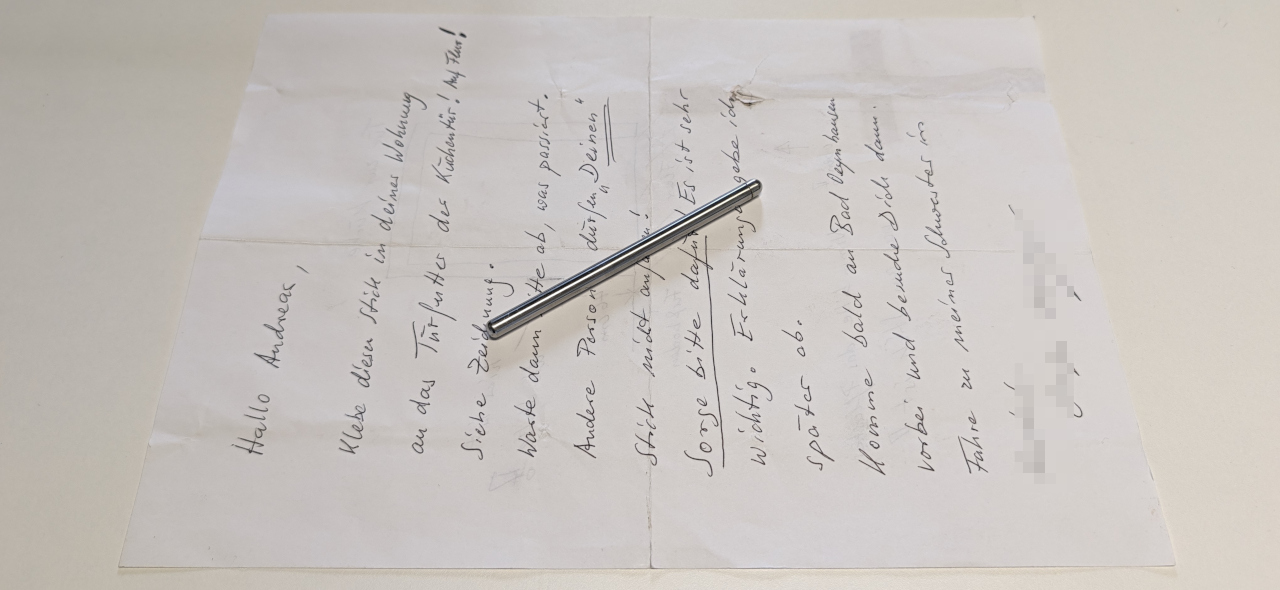 Hallo Andreas,
Klebe diesen Stick in deiner Wohnung
an das Türfutter der Küchentür! Auf Flur!
Siehe Zeichnung.
Warte dann bitte ab, was passiert.
Andere Personen dürfen „Deinen“
Stick nicht anfassen!
Sorge bitte dafür! Es ist sehr
wichtig. Erklärung gebe ich
später ab.
Komme bald an Bad Oeynhausen
vorbei und besuche Dich dann.
Fahre zu meiner Schwester in